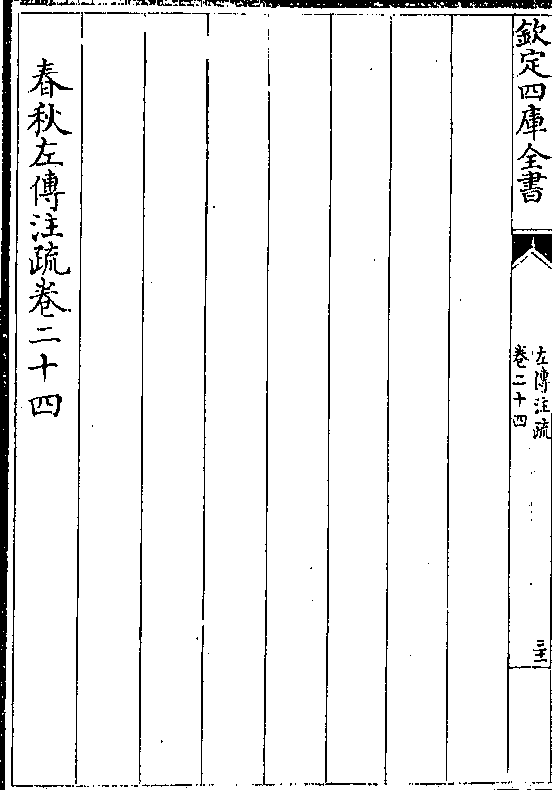 欽定四庫全書
左傳注疏
卷二十四
春秋左傳注疏卷二十四